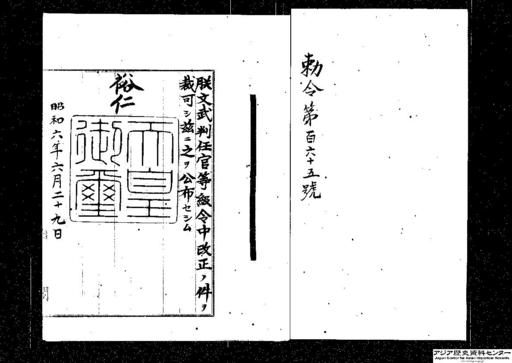 勅令第百六十五號
朕文武判任官等級令中改正ノ件ヲ
裁可シ茲ニ之ヲ公布セシム
裕仁
天皇
御璽
昭和六年六月二十九日
アジア歴史資料センター
Japan Center for Asian Historical Records